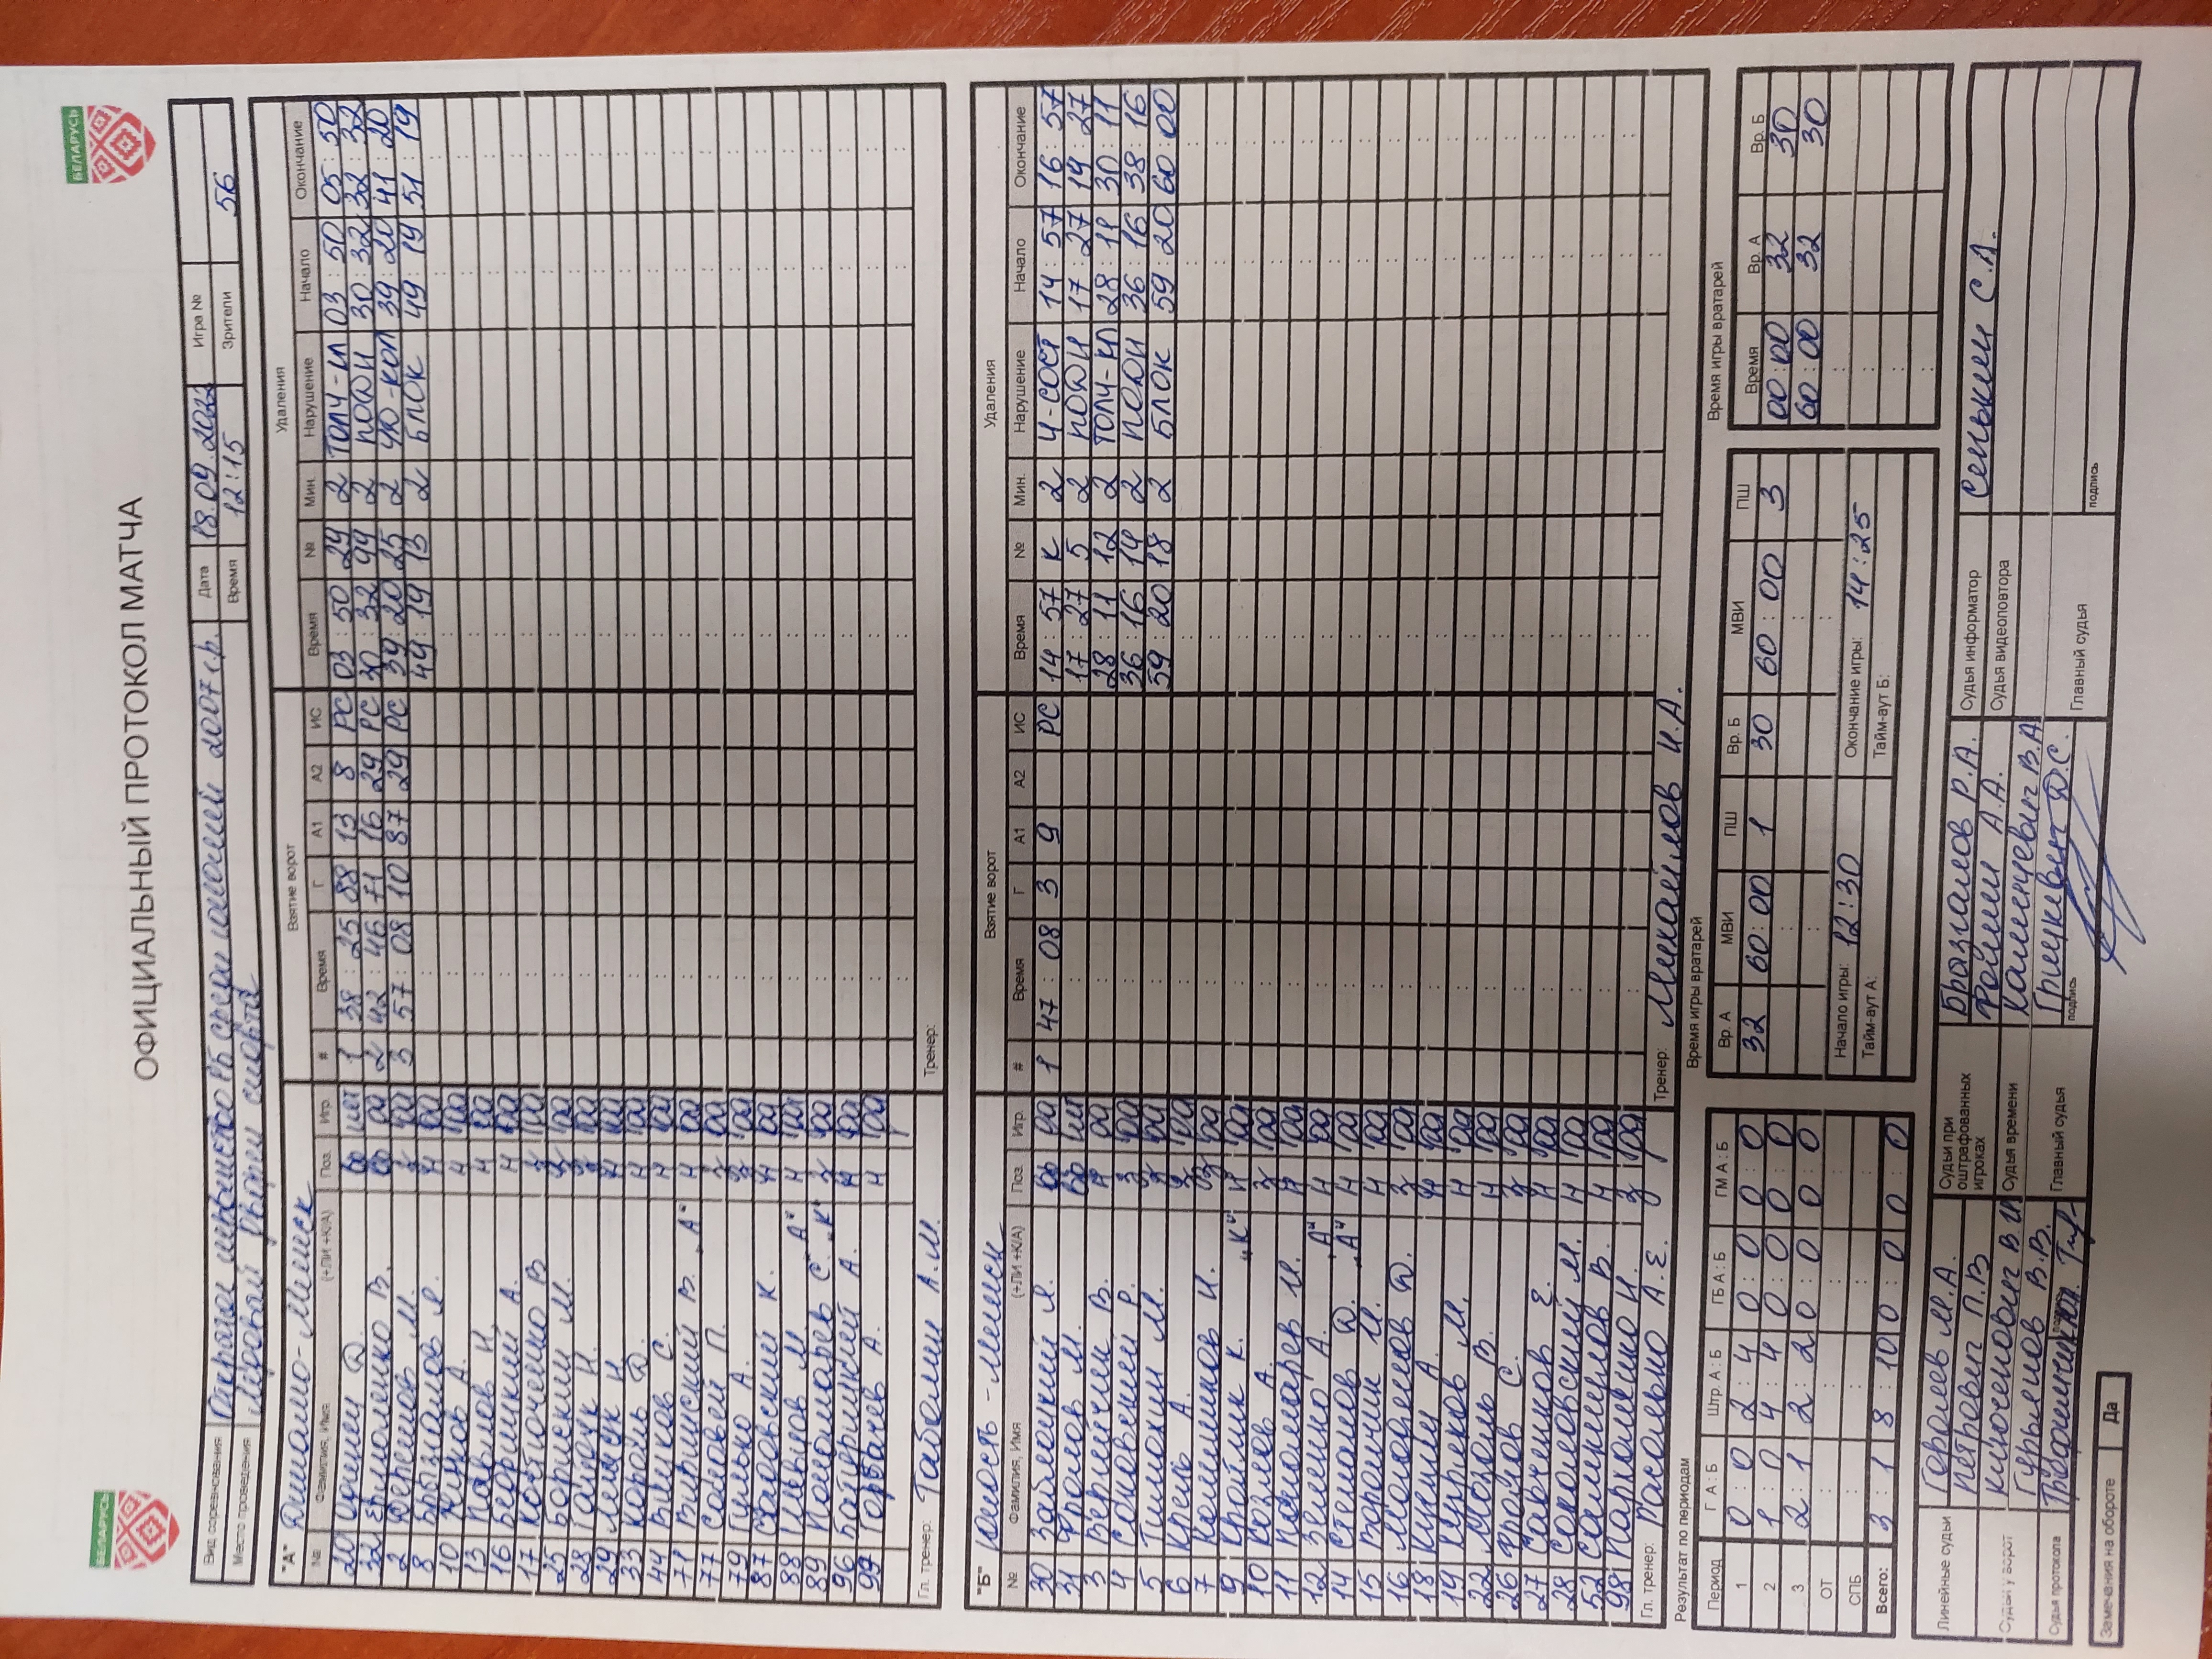 БЕЛАРУСЬ
БЕЛАРУСЬ
ОФИЦИАЛЬНЫЙ ПРОТОКОЛ МАТЧА
Вид соревнования Первенство РБ среди юношей 2007 г.р. Дата 18.09.2022 Игра №
Место проведения Дворец спорта Время 12:15 Зрители 56
"А" Динамо-Минск Взятие ворот Удаления
№ Фамилия, Имя (+ЛИ +К/А) Поз. Игр. # Время Г А1 А2 ИС Время № Мин. Нарушение Начало Окончание
20 Д. нет 1 38:25 88 13 8 РС 03:50 29 2 ТОЛЧ-ИП 03:50 05:50
32 Ермоленко В. да 2 42:46 71 16 29 РС 30:32 99 2 ПОДН 30:32 32:32
2 М. да 3 57:08 10 87 29 РС 39:20 25 2 39:20 41:20
8 Брызгалов Я. Н да 49:19 13 2 БЛОК 49:19 51:19
10 Жуков А. Н да
13 Павлов Н. Н да
16 А. Н да
17 Костюченко В да
25 Борискин М. да
28 Н. да
29 Лещук И да
33 Король Д. Н да
44 С. Н да
71 В. "А" Н да
77 Соловей П. да
79 Гулько А. да
87 К. Н да
88 М "А" Н да
89 Пономарев С. "К" да
96 А. Н да
99 Горбачев А. Н да
Гл. тренер: Таболин А.М. Тренер:
"Б" Юность-Минск Взятие ворот Удаления
№ Фамилия, Имя (+ЛИ +К/А) Поз. Игр. # Время Г А1 А2 ИС Время № Мин. Нарушение Начало Окончание
30 Заблоцкий Я. да 1 47:08 3 9 РС 14:57 К 2 Ч-СОСТ 14:57 16:57
31 Фролов М. нет 17:27 5 2 ПОДН 17:27 19:27
3 Верпейчик В. да 28:11 12 2 ТОЛЧ-ИП 28:11 30:11
4 Р. да 36:16 14 2 ПОДН 36:16 38:16
5 Тимохин М. да 59:20 18 2 БЛОК 59:20 60:00
6 Крель А. да
7 Калинников И. да
9 Крайлик К. "К" Н да
10 Козлов А. да
11 Пономарев И. Н да
12 Зеленко А. "А" Н да
14 Степанов Д. "А" Н да
15 Воронин И. Н да
16 Д. да
18 А. Н да
19 М. Н да
22 Мозоль В. Н да
26 С. да
27 Савченков Е. Н да
28 Соколовский М. Н да
52 Самушилов В. Н да
98 Пархоменко И. да
Гл. тренер: Расолько А.Е. Тренер: Михайлов И.А.
Результат по периодам Время игры вратарей Время игры вратарей
Период Г А : Б Штр. А : Б ГБ А : Б ГМ А : Б Вр. А МВИ ПШ Вр. Б МВИ ПШ Время Вр. А Вр. Б
1 0:0 2:4 0:0 0:0 32 60:00 1 30 60:00 3 00:00 32 30
2 1:0 4:4 0:0 0:0 60:00 32 30
3 2:1 2:2 0:0 0:0
ОТ
СПБ Начало игры: 12:30 Окончание игры: 14:25
Всего: 3:1 8:10 0:0 0:0 Тайм-аут А: Тайм-аут Б:
Линейные судьи Горелев М.А. Судьи при оштрафованных игроках Брызгалов Р.А. Судья информатор Сенькин С.А.
Петрович П.В А.А. Судья видеоповтора
Судьи у ворот Ключенович В. Судья времени Калинчевич В.А
Гурьянов В.В. Главный судья Грицкевич Д.С. Главный судья
Судья протокола подпись подпись
Замечания на обороте Да